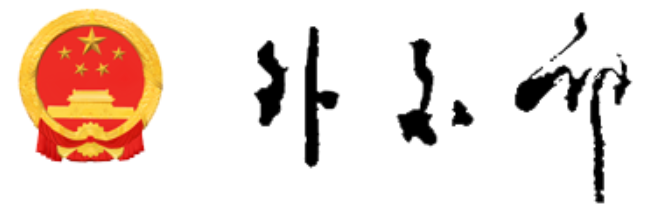 外交部